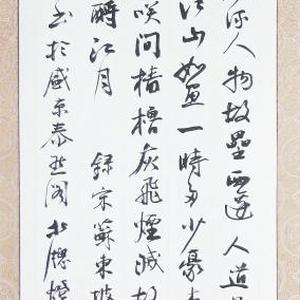 流人物故壘西邊人道是
江山如畫一時多少豪
咲間檣櫓灰飛煙滅故
酹江月 録宋蘇東坡
書於盛京泰 閣北牕燈